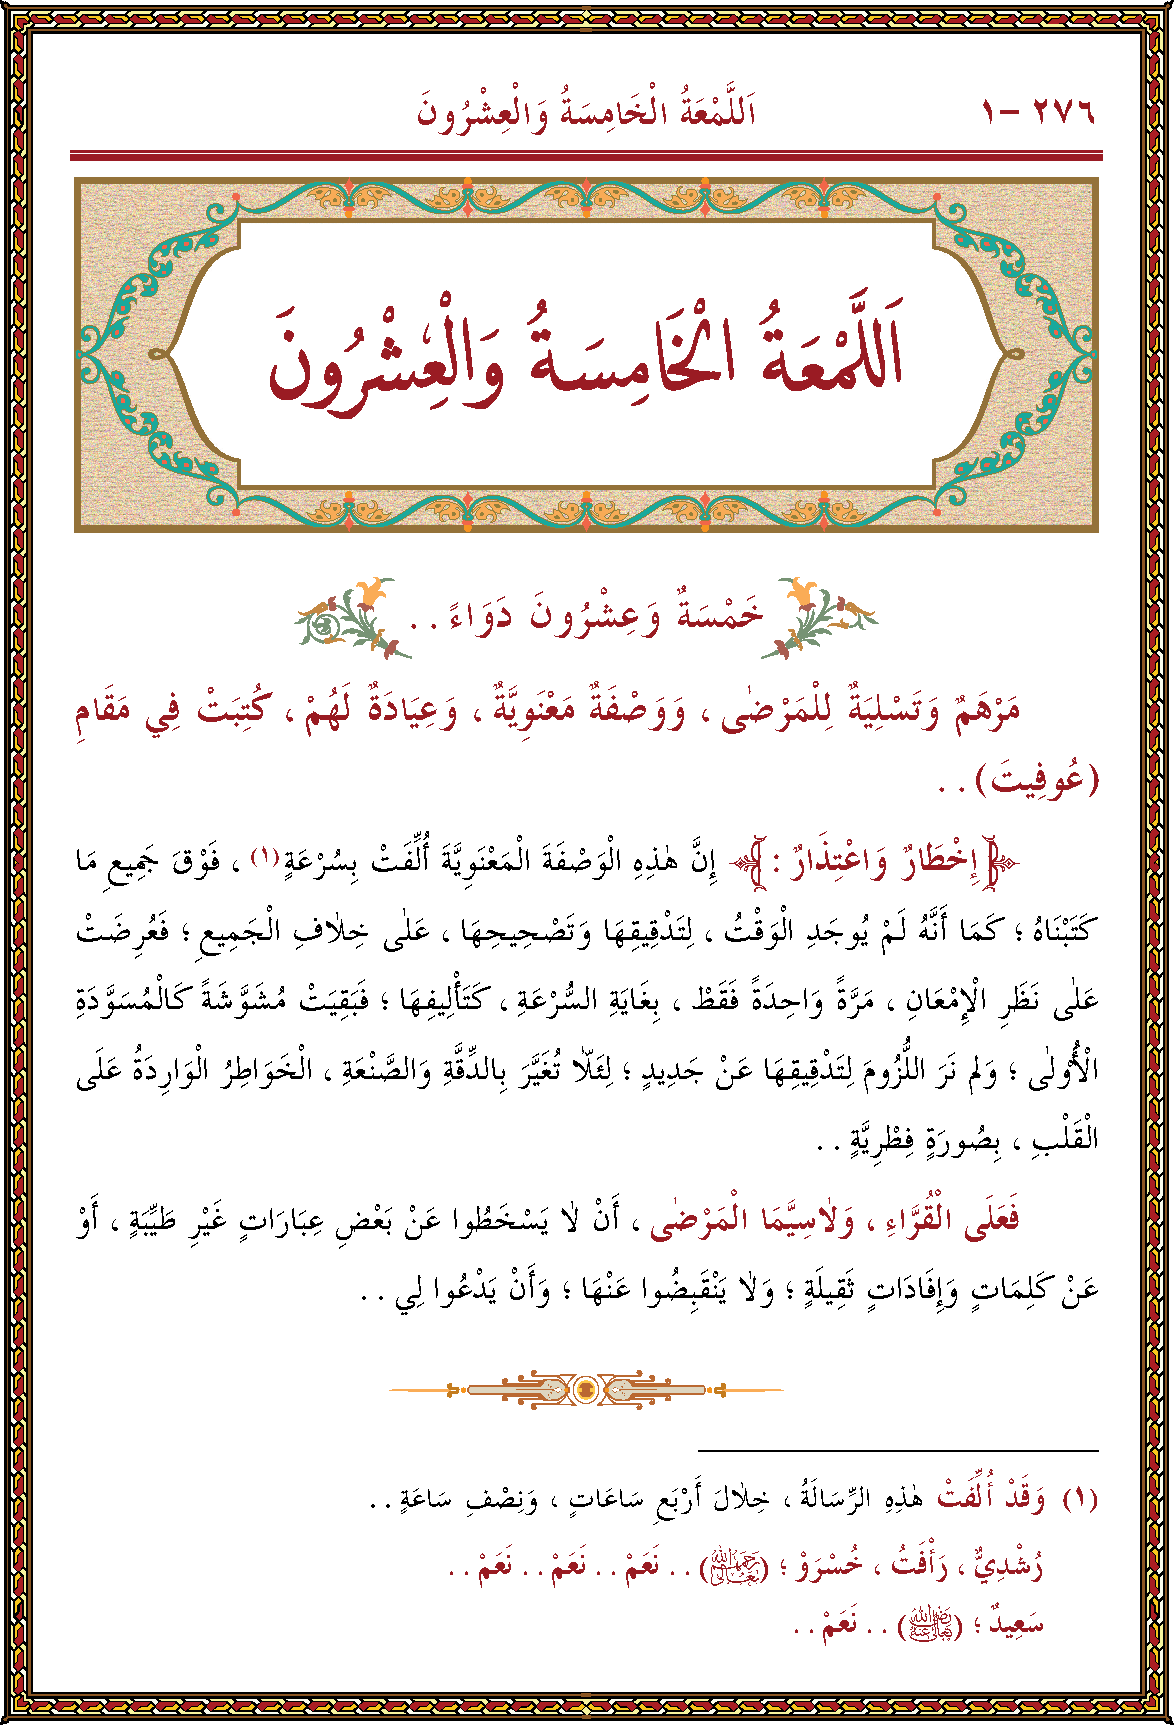 ٢٧٦ -١ اَللَّمْعَةُ الْخَامِسَةُ وَالْعِشْرُونَ
اَللَّمْعَةُ الْخَامِسَةُ وَالْعِشْرُونَ
خَمْسَةٌ وَعِشْرُونَ دَوَاءً . .
مَرْهَمٌ وَتَسْلِيَةٌ لِلْمَرْضٰى ، وَوَصْفَةٌ مَعْنَوِيَّةٌ ، وَعِيَادَةٌ لَهُمْ ، كُتِبَتْ فِي مَقَامِ
(عُوفِيتَ) . .
إِخْطَارٌ وَاعْتِذَارٌ : إِنَّ هٰذِهِ الْوَصْفَةَ الْمَعْنَوِيَّةَ أُلِّفَتْ بِسُرْعَةٍ(١) ، فَوْقَ جَمِيعِ مَا
كَتَبْنَاهُ ؛ كَمَا أَنَّهُ لَمْ يُوجَدِ الْوَقْتُ ، لِتَدْقِيقِهَا وَتَصْحِيحِهَا ، عَلٰى خِلَافِ الْجَمِيعِ ؛ فَعُرِضَتْ
عَلٰى نَظَرِ الْإِمْعَانِ ، مَرَّةً وَاحِدَةً فَقَطْ ، بِغَايَةِ السُّرْعَةِ ، كَتَأْلِيفِهَا ؛ فَبَقِيَتْ مُشَوَّشَةً كَالْمُسَوَّدَةِ
الْأُولٰى ؛ وَلم نَرَ اللُّزُومَ لِتَدْقِيقِهَا عَنْ جَدِيدٍ ؛ لِئَلَّا تُغَيَّرَ بِالدِّقَّةِ وَالصَّنْعَةِ ، الْخَوَاطِرُ الْوَارِدَةُ عَلَى
الْقَلْبِ ، بِصُورَةٍ فِطْرِيَّةٍ . .
فَعَلَى الْقُرَّاءِ ، وَلَاسِيَّمَا الْمَرْضٰى ، أَنْ لَا يَسْخَطُوا عَنْ بَعْضِ عِبَارَاتٍ غَيْرِ طَيِّبَةٍ ، أَوْ
عَنْ كَلِمَاتٍ وَإِفَادَاتٍ ثَقِيلَةٍ ؛ وَلَا يَنْقَبِضُوا عَنْهَا ؛ وَأَنْ يَدْعُوا لِي . .
(١) وَقَدْ أُلِّفَتْ هٰذِهِ الرِّسَالَةُ ، خِلَالَ أَرْبَعِ سَاعَاتٍ ، وَنِصْفِ سَاعَةٍ . .
رُشْدِيٌّ ، رَأْفَتُ ، خُسْرَوْ ؛ (رَحِمَهُمُ اللّٰهُ تَعَالٰى) . . نَعَمْ . . نَعَمْ . . نَعَمْ . .
سَعِيدٌ ؛ (رَضِيَ اللّٰهُ تَعَالٰى عَنْهُ) . . نَعَمْ . .